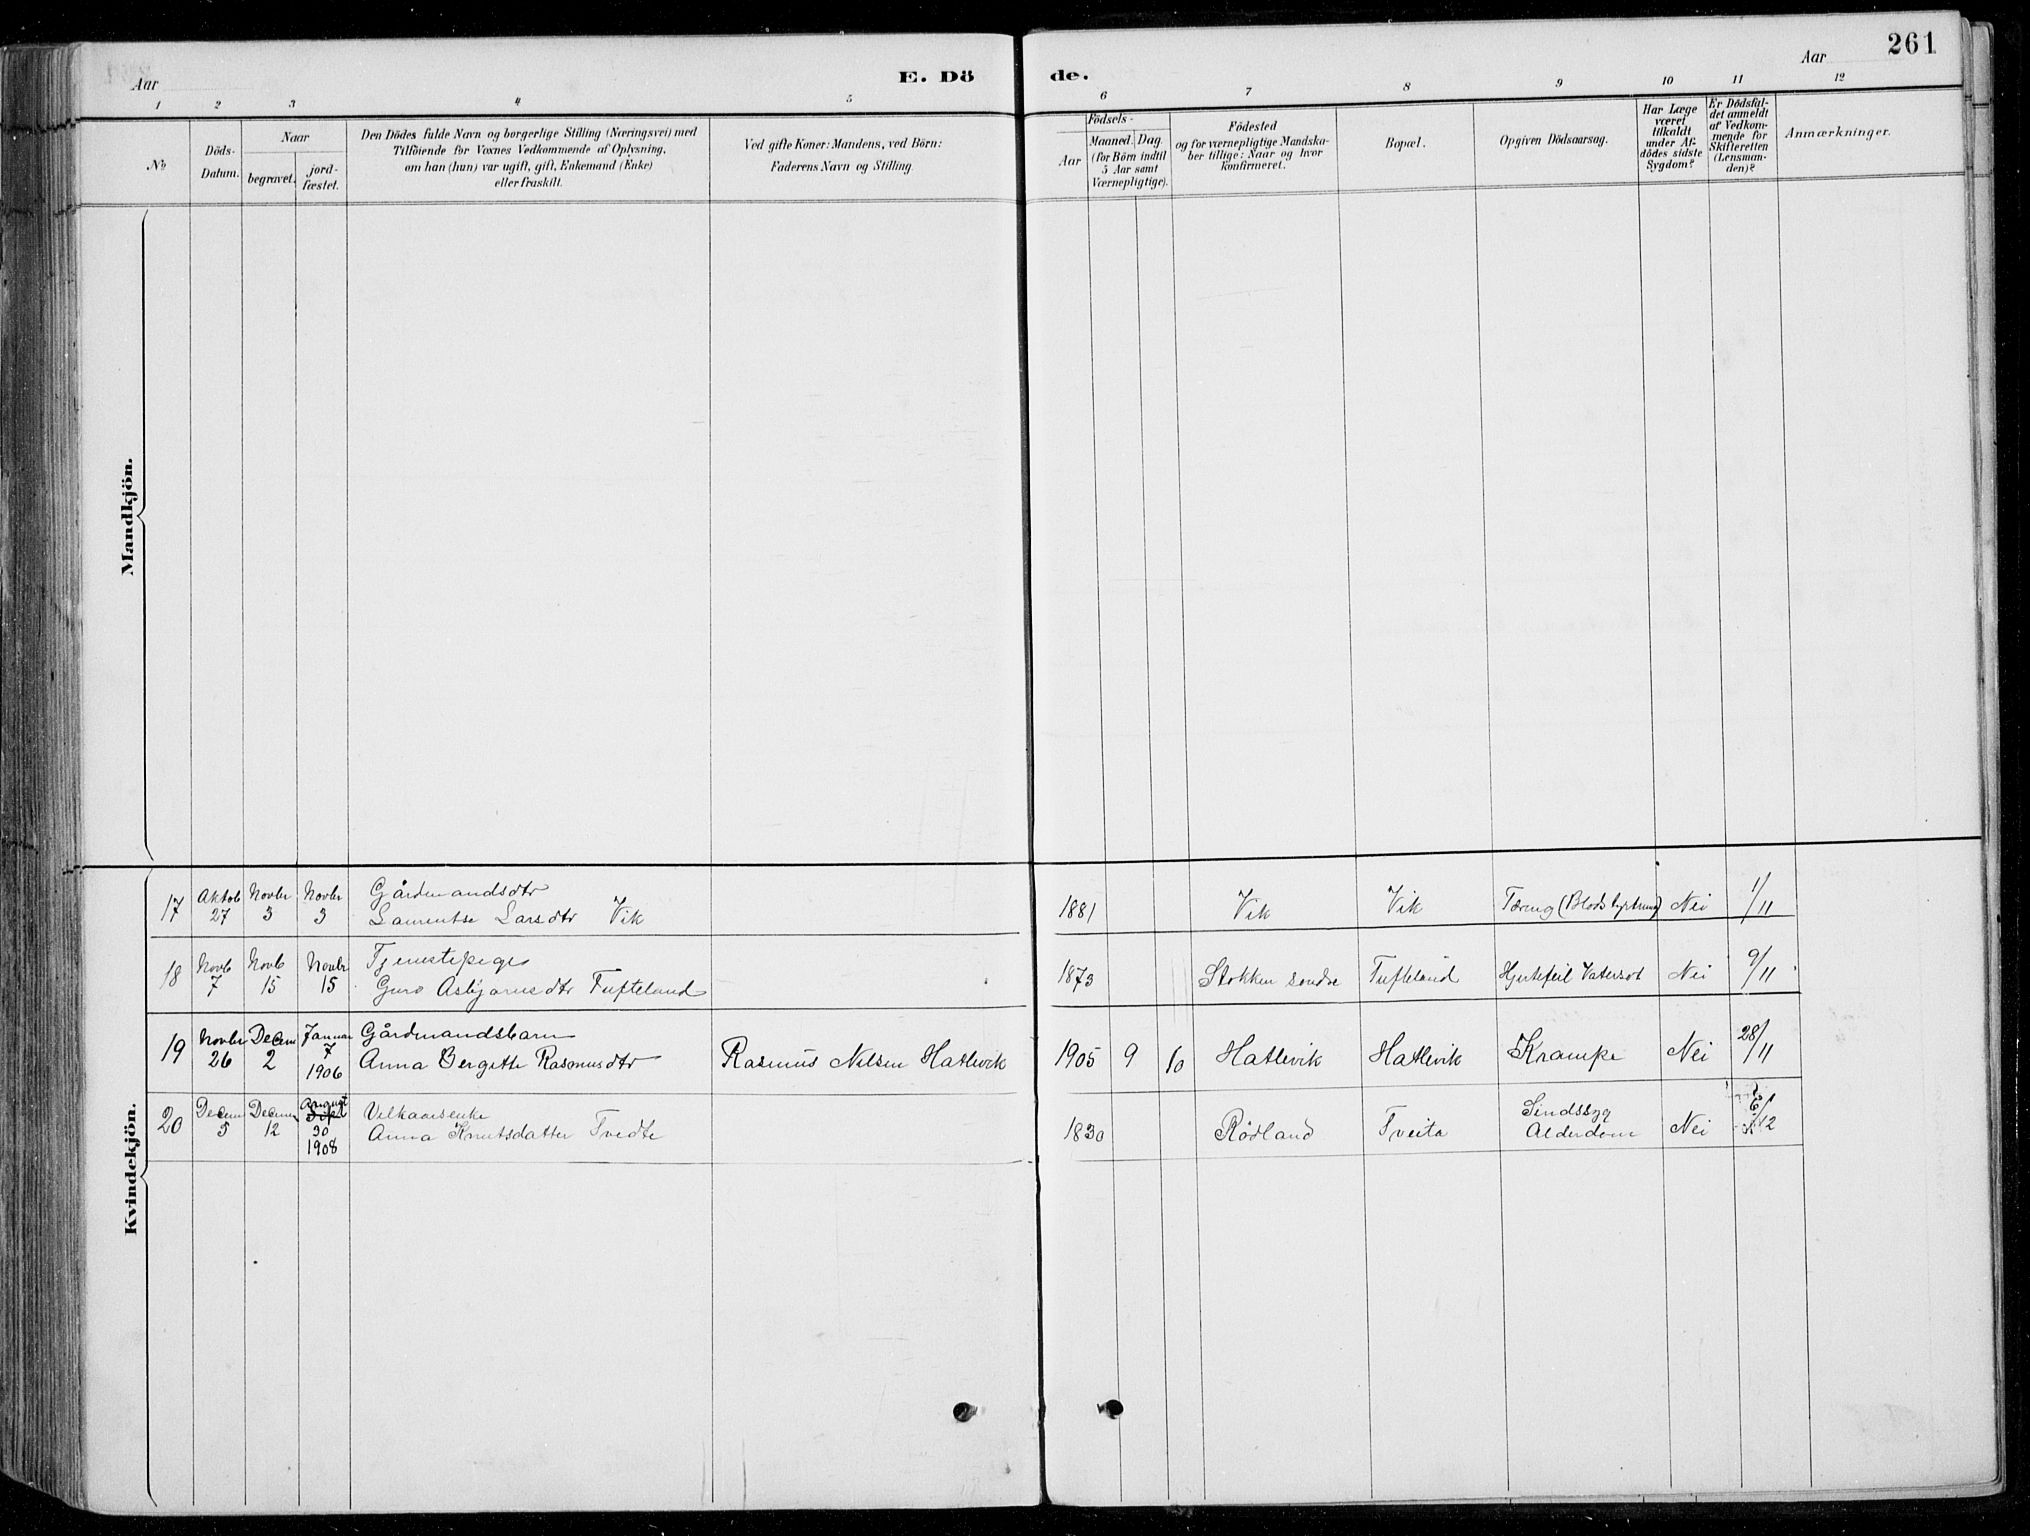 261
Aar
E. Dö
de.
Aar
1 2 3 4 5 6 7 8 9 10 11 12
No.
Döds-
Datum.
Naar
begravet.
jord-
fæstet.
Den Dödes fulde Navn og borgerlige Stilling (Næringsvei) med
Tilföiende for Voxnes Vedkommende af Oplysning,
om han (hun) var ugift, gift, Enkemand (Enke)
eller fraskilt.
Ved gifte Koner: Mandens, ved Börn:
Faderens Navn og Stilling.
Födsels-
Aar
Maaned. Dag.
(for Börn indtil
5 Aar samt
Værnepligtige).
Födested
og for værnepligtige Mandska-
ber tillige: Naar og hvor
konfirmeret.
Bopæl.
Opgiven Dödsaarsag.
Har Læge
været
tilkaldt
under Af-
dödes sidste
Sygdom?
Er Dödsfal-
det anmeldt
af Vedkom-
mende for
Skifteretten
(Lensman-
den)?
Anmærkninger.
Mandkjön.
Kvindekjön.
17 Aktob 27 Novbr 3 Novbr 3
Gårdmandsdtr
Laurentse Larsdtr Vik
1881 Vik Vik Tæring Nei 1/11
18 Novb 7 Novb 15 Novbr 15
Tjenestepige
Guro Asbjørnsdtr Tufteland
1873 Stokken søndre Tufteland Hjertefeil Vatersot Nei 9/11
19 Novbr 26 Decem 2 Januar 7 1906
Gårdmandsbarn
Anna Bergitte Rasmusdtr
Rasmus Nilsen Hatlevik
1905 9 10 Hatlevik Hatlevik Krampe Nei 28/11
20 Decem 5 Decem 12 August 30 1908
Vilkaarsenke
Anna Knutsdatter Tvedte
1830 Rödland Tveita
Sindssyg
Alderdom
Nei